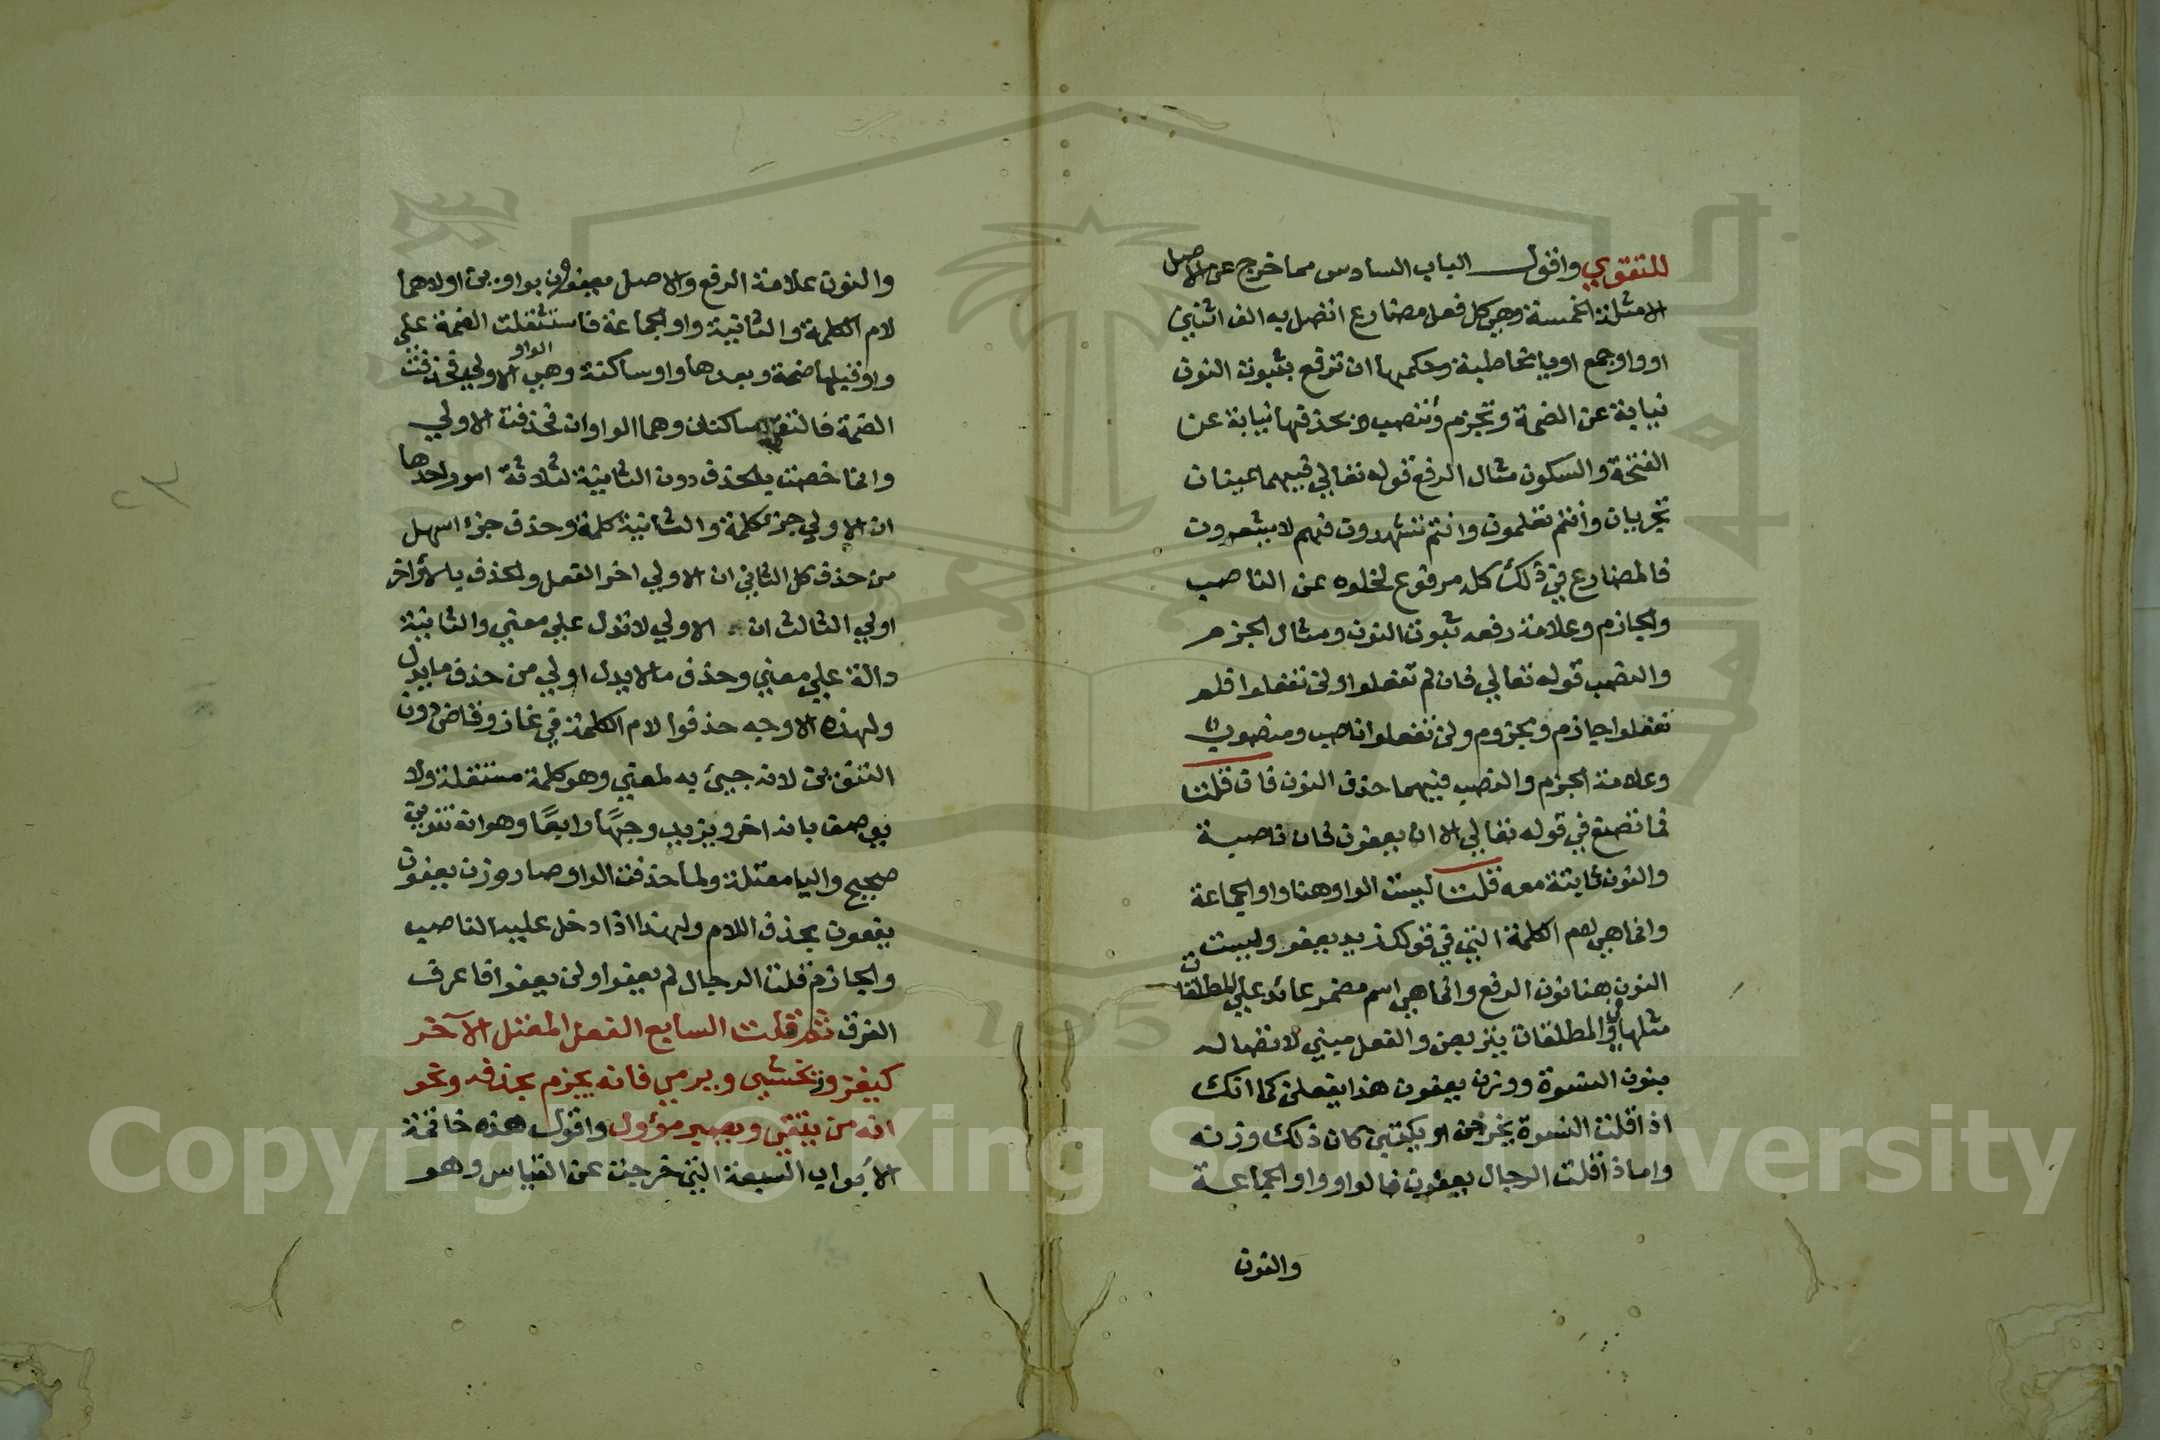 للتقوي واقول الباب السادس مما خرج عن الاصل
الامثلة الخمسة وهي كل فعل مضارع اتصل به الف اثنين
او واو جمع او يا مخاطبة وحكمها ان ترفع بثبوت النون
نيابة عن الضمة وتجزم وتنصب بحذفها نيابة عن
الفتحة والسكون مثال الرفع قوله تعالي فيهما عينان
تجريان وأنتم تعلمون وانتم تشهدون فهم لا يشعرون
فالمضارع في ذلك كله مرفوع لخلوه عن الناصب
والجازم وعلامة رفعه ثبوت النون ومثال الجزم
والنصب قوله تعالي فان لم تفعلوا ولن تفعلوا فلم
تفعلوا جازم ومجزوم ولن تفعلوا ناصب ومنصوب
وعلامة الجزم والنصب فيهما حذف النون فان قلت
فما تصنع في قوله تعالي الا ان يعفون فان ناصبة
والنون ثابتة معه قلت ليست الواو هنا واو الجماعة
وانما هي لام الكلمة التي في قولك زيد يعفو وليست
النون هنا نون الرفع وانما هي اسم مضمر عائد علي المطلقات
مثلها في والمطلقات يتربصن والفعل مبني لاتصاله
بنون النسوة ووزن يعفون هذا يفعلن كما انك
اذا قلت النسوة يخرجن او يكتبن كان ذلك وزنه
واما اذا قلت الرجال يعفون فالواو واو الجماعة
والنون
والنون علامة الرفع والاصل يعفوون بواوين اولاهما
لام الكلمة والثانية واو الجماعة فاستثقلت الضمة علي
واو قبلها ضمة وبعدها واو ساكنة وهي الواو الاولي فحذفت
الضمة فالتقي ساكنان وهما الواوان فحذفت الاولي
وانما خصت بالحذف دون الثانية لثلاثة امور احدها
ان الاولي جزء كلمة والثانية كلمة وحذف جزء اسهل
من حذف كل الثاني ان الاولي اخر الفعل والحذف بالأواخر
اولي الثالث ان الاولي لا تدل علي معني والثانية
دالة علي معني وحذف ما لا يدل اولي من حذف ما يدل
ولهذه الاوجه حذفوا لام الكلمة في غاز وقاض دون
التنوين لانه جيئ به لمعني وهو كلمة مستقلة ولا
يوصف بانه اخر ويزيد وجها رابعا وهو انه تنوين
صحيح واليا معتلة ولما حذفت الواو صار وزن يعفون
يفعون بحذف اللام ولهذا اذا دخل عليه الناصب
والجازم قلت الرجال لم يعفوا ولن يعفوا فاعرف
الفرق ثم قلت السابع الفعل المعتل الآخر
كيغزو ويخشي ويرمي فانه يجزم بحذفه ونحو
انه من يتقي ويصبر مؤول واقول هذه خاتمة
الأبواب السبعة التي خرجت عن القياس وهو
Copyright © King Saud University
1957